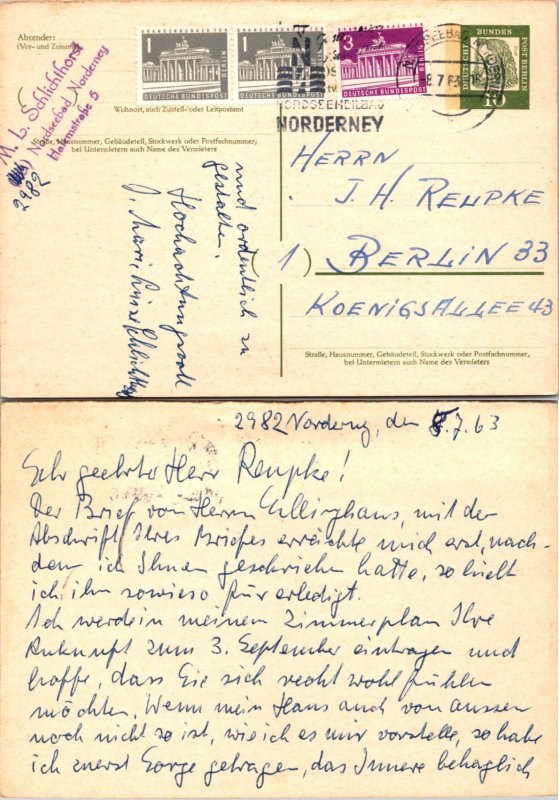 Absender:
(Vor- und Zuname)
M. L. Schlichthorst
Nordseebad Norderney
Halemstraße 5
2982
Wohnort, auch Zustell- oder Leitpostamt
Straße, Hausnummer, Gebäudeteil, Stockwerk oder Postfachnummer;
bei Untermietern auch Name des Vermieters
1
DEUTSCHE BUNDESPOST
BERLIN
1
DEUTSCHE BUNDESPOST
3
DEUTSCHE BUNDESPOST
BERLIN
DEUTSCHE
BUNDES
POST BERLIN
10
NORDSEEHEILBAD
NORDERNEY
HERRN
J. H. REUPKE
1) BERLIN 33
KOENIGSALLEE 43
Straße, Hausnummer, Gebäudeteil, Stockwerk oder Postfachnummer,
bei Untermietern auch Name des Vermieters
und ordentlich zu
gestalten.
Hochachtungsvoll
Marie Luise Schlichthorst
2982 Norderney, den 8.7.63
Sehr geehrter Herr Reupke!
Der Brief von Herrn Ellinghaus, mit der
Abschrift Ihres Briefes erreichte mich erst, nach-
dem ich Ihnen geschrieben hatte, so hielt
ich ihn sowieso für erledigt.
Ich werde in meinem Zimmerplan Ihre
Ankunft zum 3. September eintragen und
hoffe, dass Sie sich recht wohl fühlen
möchten. Wenn mein Haus auch von aussen
noch nicht so ist, wie ich es mir vorstelle, so habe
ich zuerst Sorge getragen, das Innere behaglich